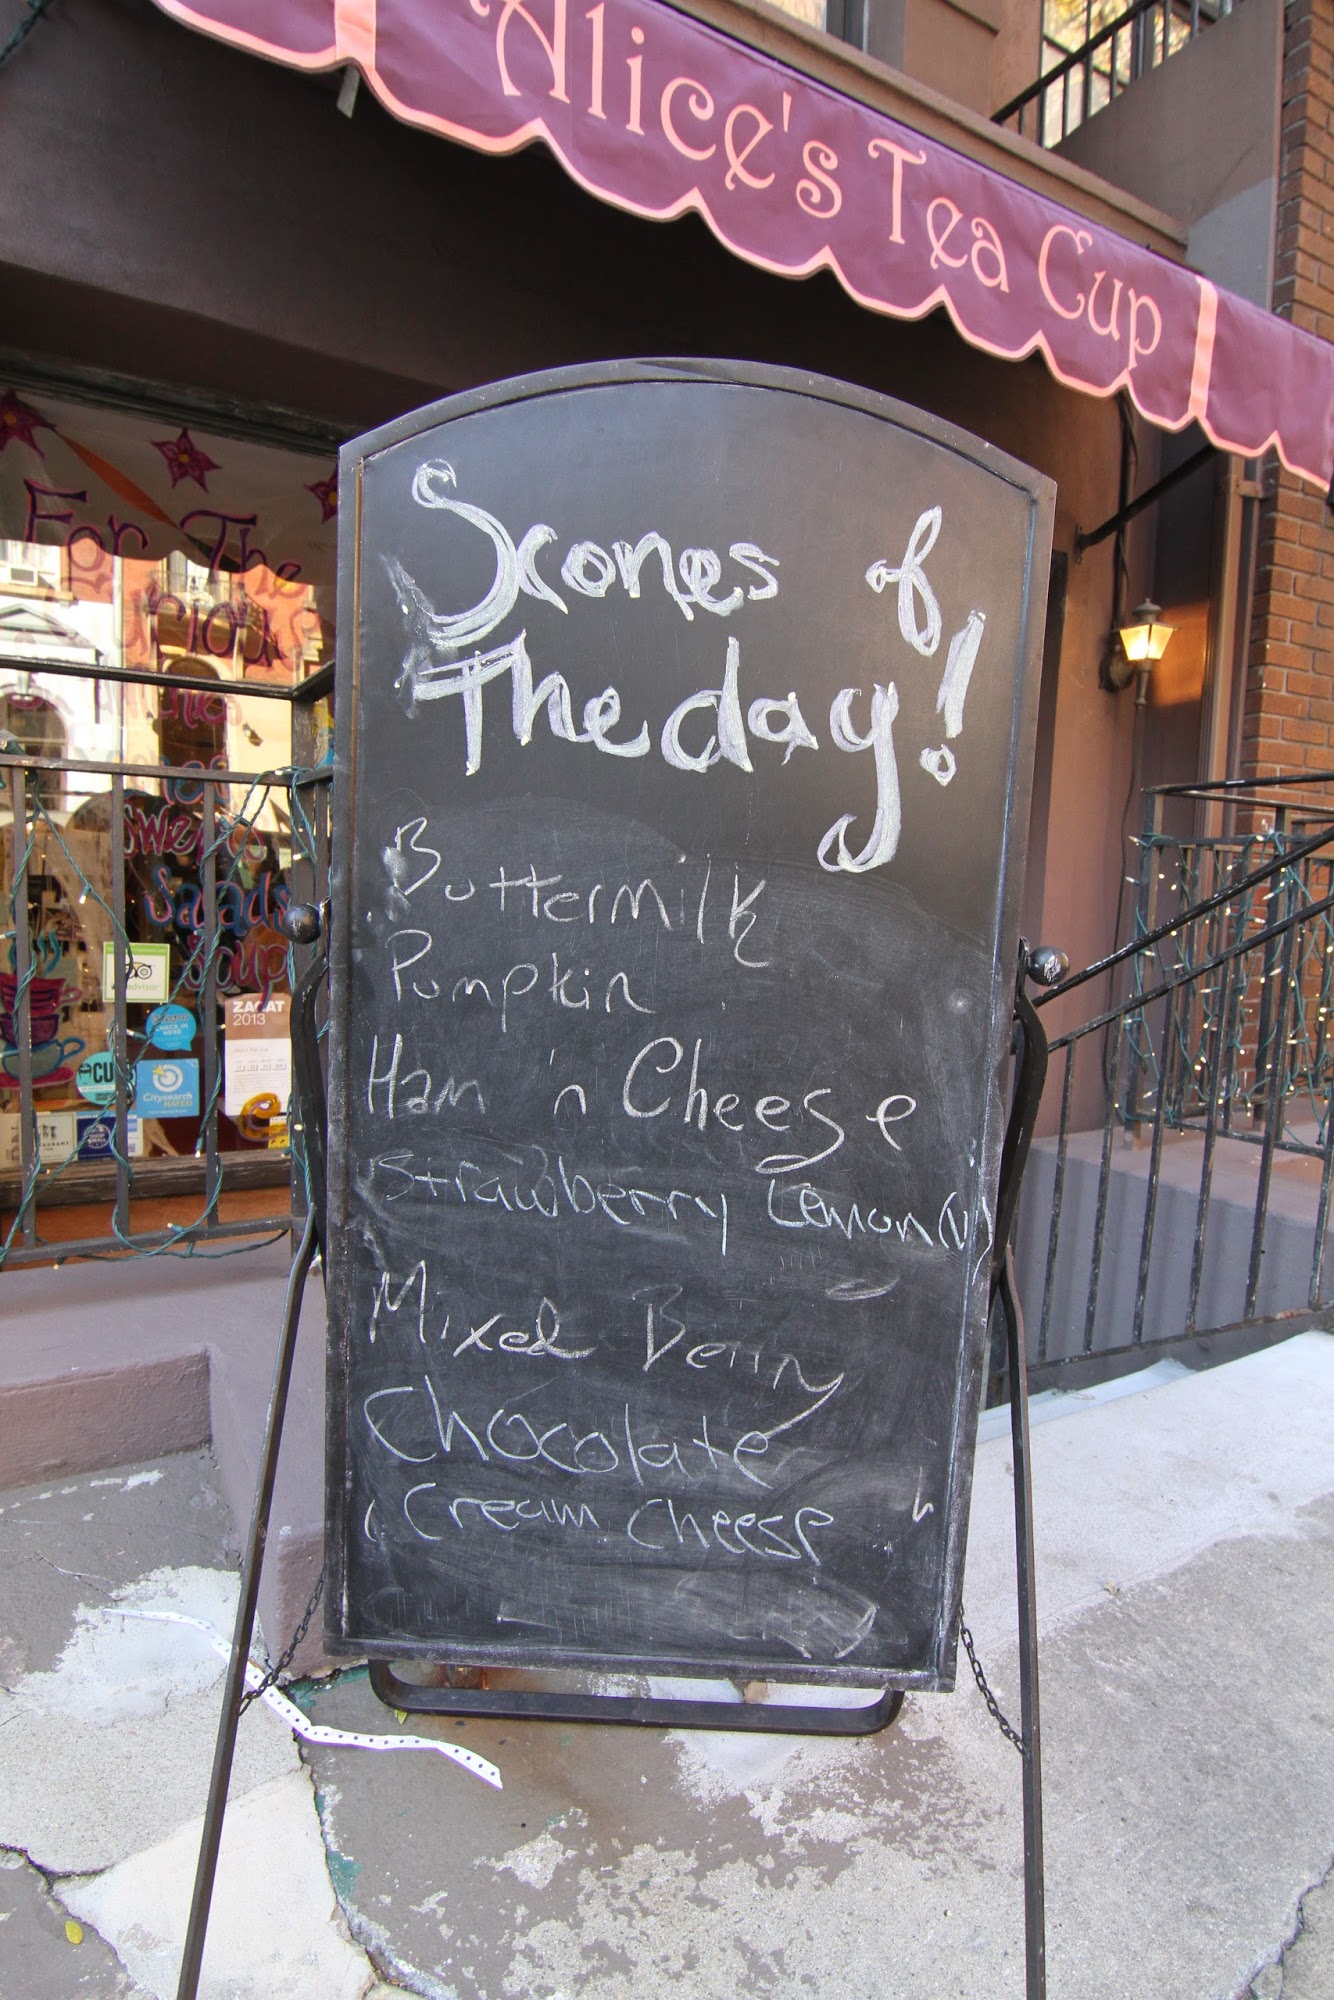 Alice's Tea Cup
Scones of
The day!
Buttermilk
Pumpkin
Ham 'n Cheese
Strawberry Lemon (v)
Mixed Berry
Chocolate
Cream Cheese
For The
Curious
Sweets
Salads
Soup
ZAGAT
2013
CHECK IN
HERE
Citysearch